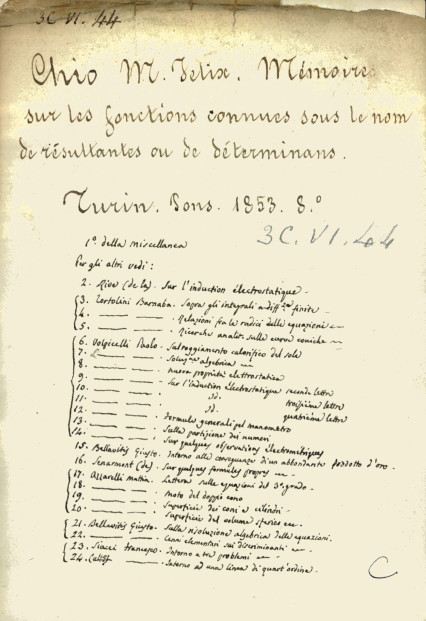 3C VI. 44
Chio M. Felix. Mémoires
sur les fonctions connues sous le nom
de résultantes ou de déterminans.
Turin. Pons. 1853. 8.°
3C. VI. 44
1°. della miscellanea
Per gli altri vedi:
2. Rive (de la). Sur l'induction électrostatique -
3. Tortolini Barnaba. Sopra gli integrali a diff. finite -
4. ——— . Relazioni fra le radici delle equazioni -
5. ——— . Ricerche analit. sulle curve coniche -
6. Volpicelli Paolo. Sul raggiamento calorifico del sole
7. ——— algebrica -
8. ——— nuova proprietà elettrostatica
9. ——— Sur l'induction électrostatique seconde lettre
10. ——— id. troisième lettre
11. ——— id. quatrième lettre
12. ——— Formule generali pel manometro
13. ——— Sulla partizione dei numeri
14. ——— Sur quelques observations électrométriques
15. Bellavitis Giusto. Intorno alle conseguenze di un abbondante prodotto d'oro.
16. Senarmont (de) . Sur quelques formules propres
17. Azzarelli Mattia. Lettera sulle equazioni del 3° grado -
18. ——— Moto del doppio cono
19. ——— Superficie dei coni e cilindri
20. ——— Superficie del volume sferico
21. Bellavitis Giusto. Sulla risoluzione algebrica delle equazioni.
22. ——— Cenni elementari sui discriminanti
23. Siacci Francesco. Intorno a tre problemi
24. ——— Intorno ad una linea di quart'ordine.
C